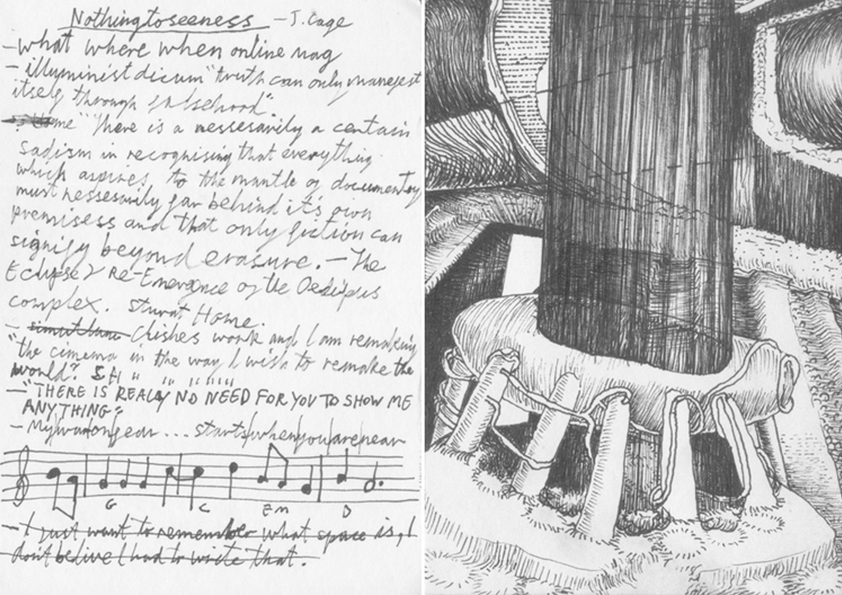 Nothingtoseeness - J. Cage
- what where when online mag
- illuminist dicum "truth can only manefest
itself through falsehood".
"There is a nessesarily a certain
sadism in recognising that everything
which aspires to the mantle of documentary
must nessesarily far behind it's own
premisess and that only fiction can
signify beyond erasure. - The
Eclipse & Re-Emergence of the Oedipus
complex. Stwart Home.
- Clishes work and I am remaking
"the cinema in the way I wish to remake the
world". SH " " " " " "
- "THERE IS REALLY NO NEED FOR YOU TO SHOW ME
ANYTHING"
- My war on fear ... starts/when/you/are/near
G C Em D
- I just want to remember what space is, I
don't belive I had to write that.